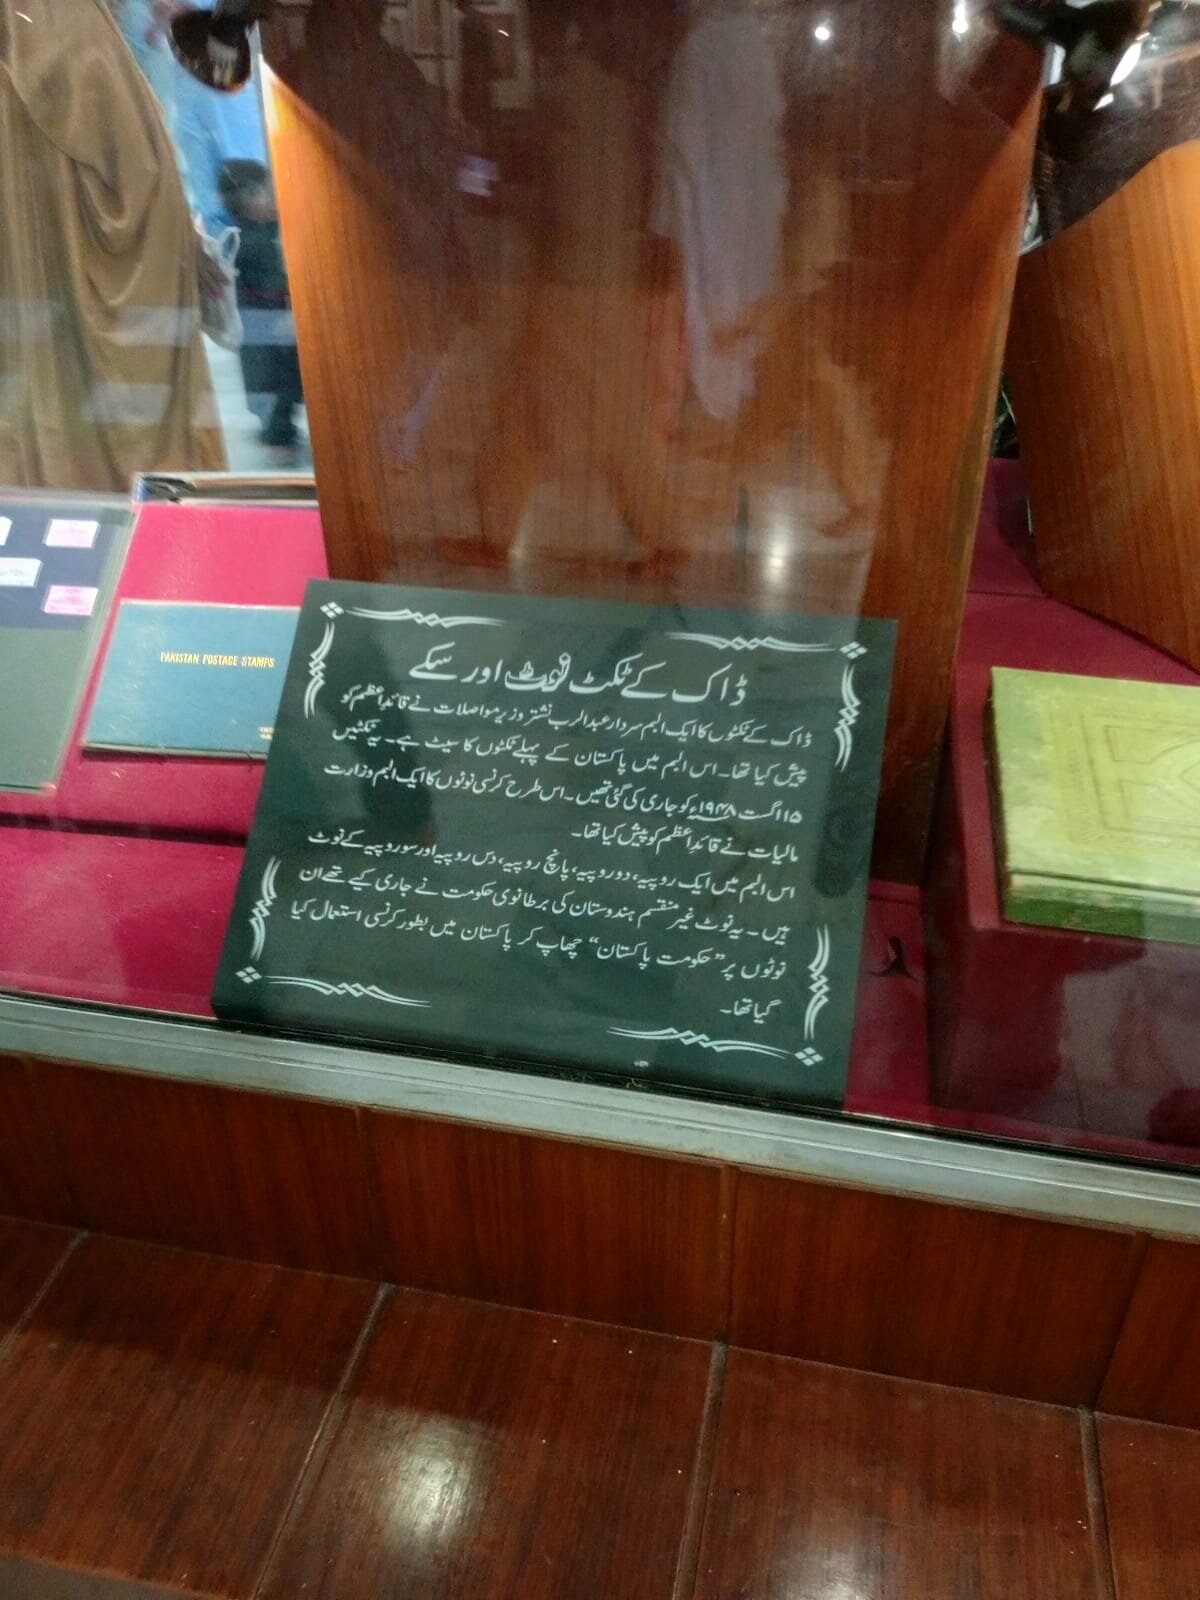 PAKISTAN POSTAGE STAMPS
ڈاک کے ٹکٹ نوٹ اور سکے
ڈاک کے ٹکٹوں کا ایک البم سردار عبدالرب نشتر وزیر مواصلات نے قائداعظم کو
پیش کیا تھا۔ اس البم میں پاکستان کے پہلے ٹکٹوں کا سیٹ ہے۔ یہ ٹکٹیں
۱۵ اگست ۱۹۴۸ء کو جاری کی گئی تھیں۔ اس طرح کرنسی نوٹوں کا ایک البم وزارت
مالیات نے قائداعظم کو پیش کیا تھا۔
اس البم میں ایک روپیہ، دو روپیہ، پانچ روپیہ، دس روپیہ اور سو روپیہ کے نوٹ
ہیں۔ یہ نوٹ غیر منقسم ہندوستان کی برطانوی حکومت نے جاری کیے تھے ان
نوٹوں پر ”حکومت پاکستان“ چھاپ کر پاکستان میں بطور کرنسی استعمال کیا
گیا تھا۔